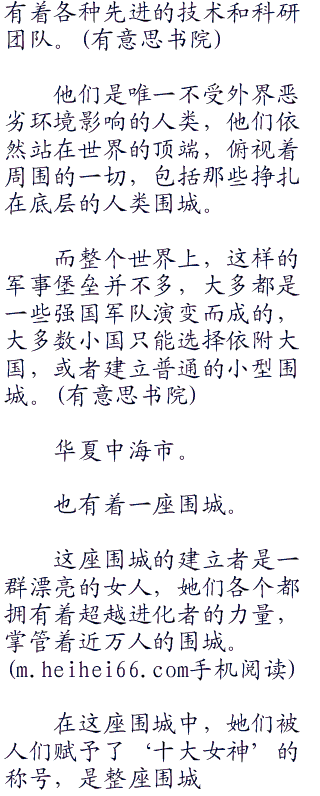 有着各种先进的技术和科研
团队。(有意思书院)
他们是唯一不受外界恶
劣环境影响的人类，他们依
然站在世界的顶端，俯视着
周围的一切，包括那些挣扎
在底层的人类围城。
而整个世界上，这样的
军事堡垒并不多，大多都是
一些强国军队演变而成的，
大多数小国只能选择依附大
国，或者建立普通的小型围
城。(有意思书院)
华夏中海市。
也有着一座围城。
这座围城的建立者是一
群漂亮的女人，她们各个都
拥有着超越进化者的力量，
掌管着近万人的围城。
(m.heihei66.com手机阅读)
在这座围城中，她们被
人们赋予了‘十大女神’的
称号，是整座围城